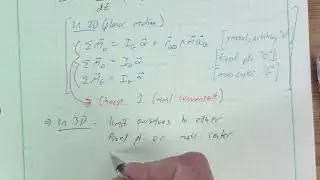 dt
In 2D (planar motion)
ΣM⃗ₒ = I_G α⃗ + r⃗_GO × m a⃗_G [general, arbitrary "O"]
ΣM⃗ₒ = Iₒ α⃗ [Fixed pt. "O"]
ΣM⃗_G = I_G α⃗ [mass center "G"]
→ choose 1 (most convenient)
⇒ In 3D: limit ourselves to either
fixed pt. or mass center